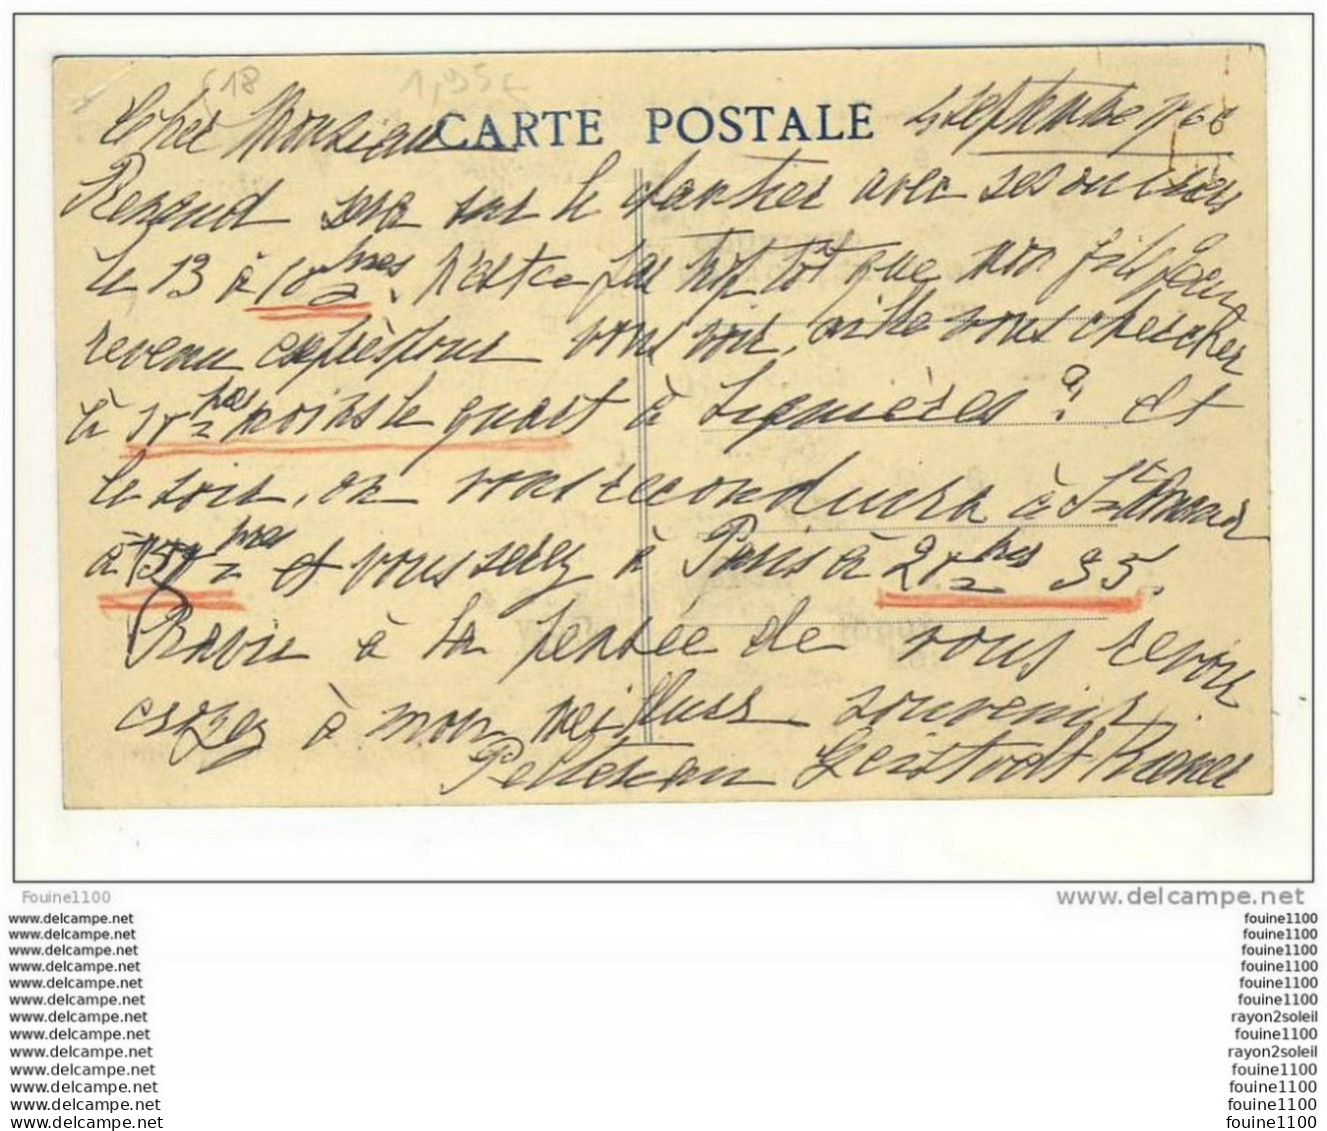 618 1,95c
CARTE POSTALE
Cher Monsieur 4 septembre 1966
Renaud sera sur le chantier avec ses ouvriers
le 13 à 10 hres. N'est ce pas trop tôt que mon fils Jean
revenu exprès pour vous voir, aille vous chercher
à hres moins le quart à Lignières? et
le soir, on vous reconduira à St Amand
à hres et vous serez à Paris à 21 hres 35.
Ravie à la pensée de vous revoir
croyez à mon meilleur souvenir
Pelletean
Fouine1100 www.delcampe.net
www.delcampe.net fouine1100
www.delcampe.net fouine1100
www.delcampe.net fouine1100
www.delcampe.net fouine1100
www.delcampe.net fouine1100
www.delcampe.net fouine1100
www.delcampe.net rayon2soleil
www.delcampe.net fouine1100
www.delcampe.net rayon2soleil
www.delcampe.net fouine1100
www.delcampe.net fouine1100
www.delcampe.net fouine1100
www.delcampe.net fouine1100